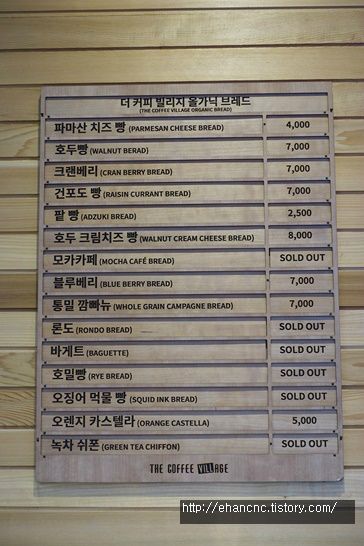 더 커피 빌리지 올가닉 브레드
(THE COFFEE VILLAGE ORGANIC BREAD)
파마산 치즈 빵 (PARMESAN CHEESE BREAD) 4,000
호두빵 (WALNUT BERAD) 7,000
크랜베리 (CRAN BERRY BREAD) 7,000
건포도 빵 (RAISIN CURRANT BREAD) 7,000
팥 빵 (ADZUKI BREAD) 2,500
호두 크림치즈 빵 (WALNUT CREAM CHEESE BREAD) 8,000
모카카페 (MOCHA CAFÉ BREAD) SOLD OUT
블루베리 (BLUE BERRY BREAD) 7,000
통밀 깜빠뉴 (WHOLE GRAIN CAMPAGNE BREAD) 7,000
론도 (RONDO BREAD) SOLD OUT
바게트 (BAGUETTE) SOLD OUT
호밀빵 (RYE BREAD) SOLD OUT
오징어 먹물 빵 (SQUID INK BREAD) SOLD OUT
오렌지 카스텔라 (ORANGE CASTELLA) 5,000
녹차 쉬폰 (GREEN TEA CHIFFON) SOLD OUT
THE COFFEE VILLAGE
http://ehancnc.tistory.com/